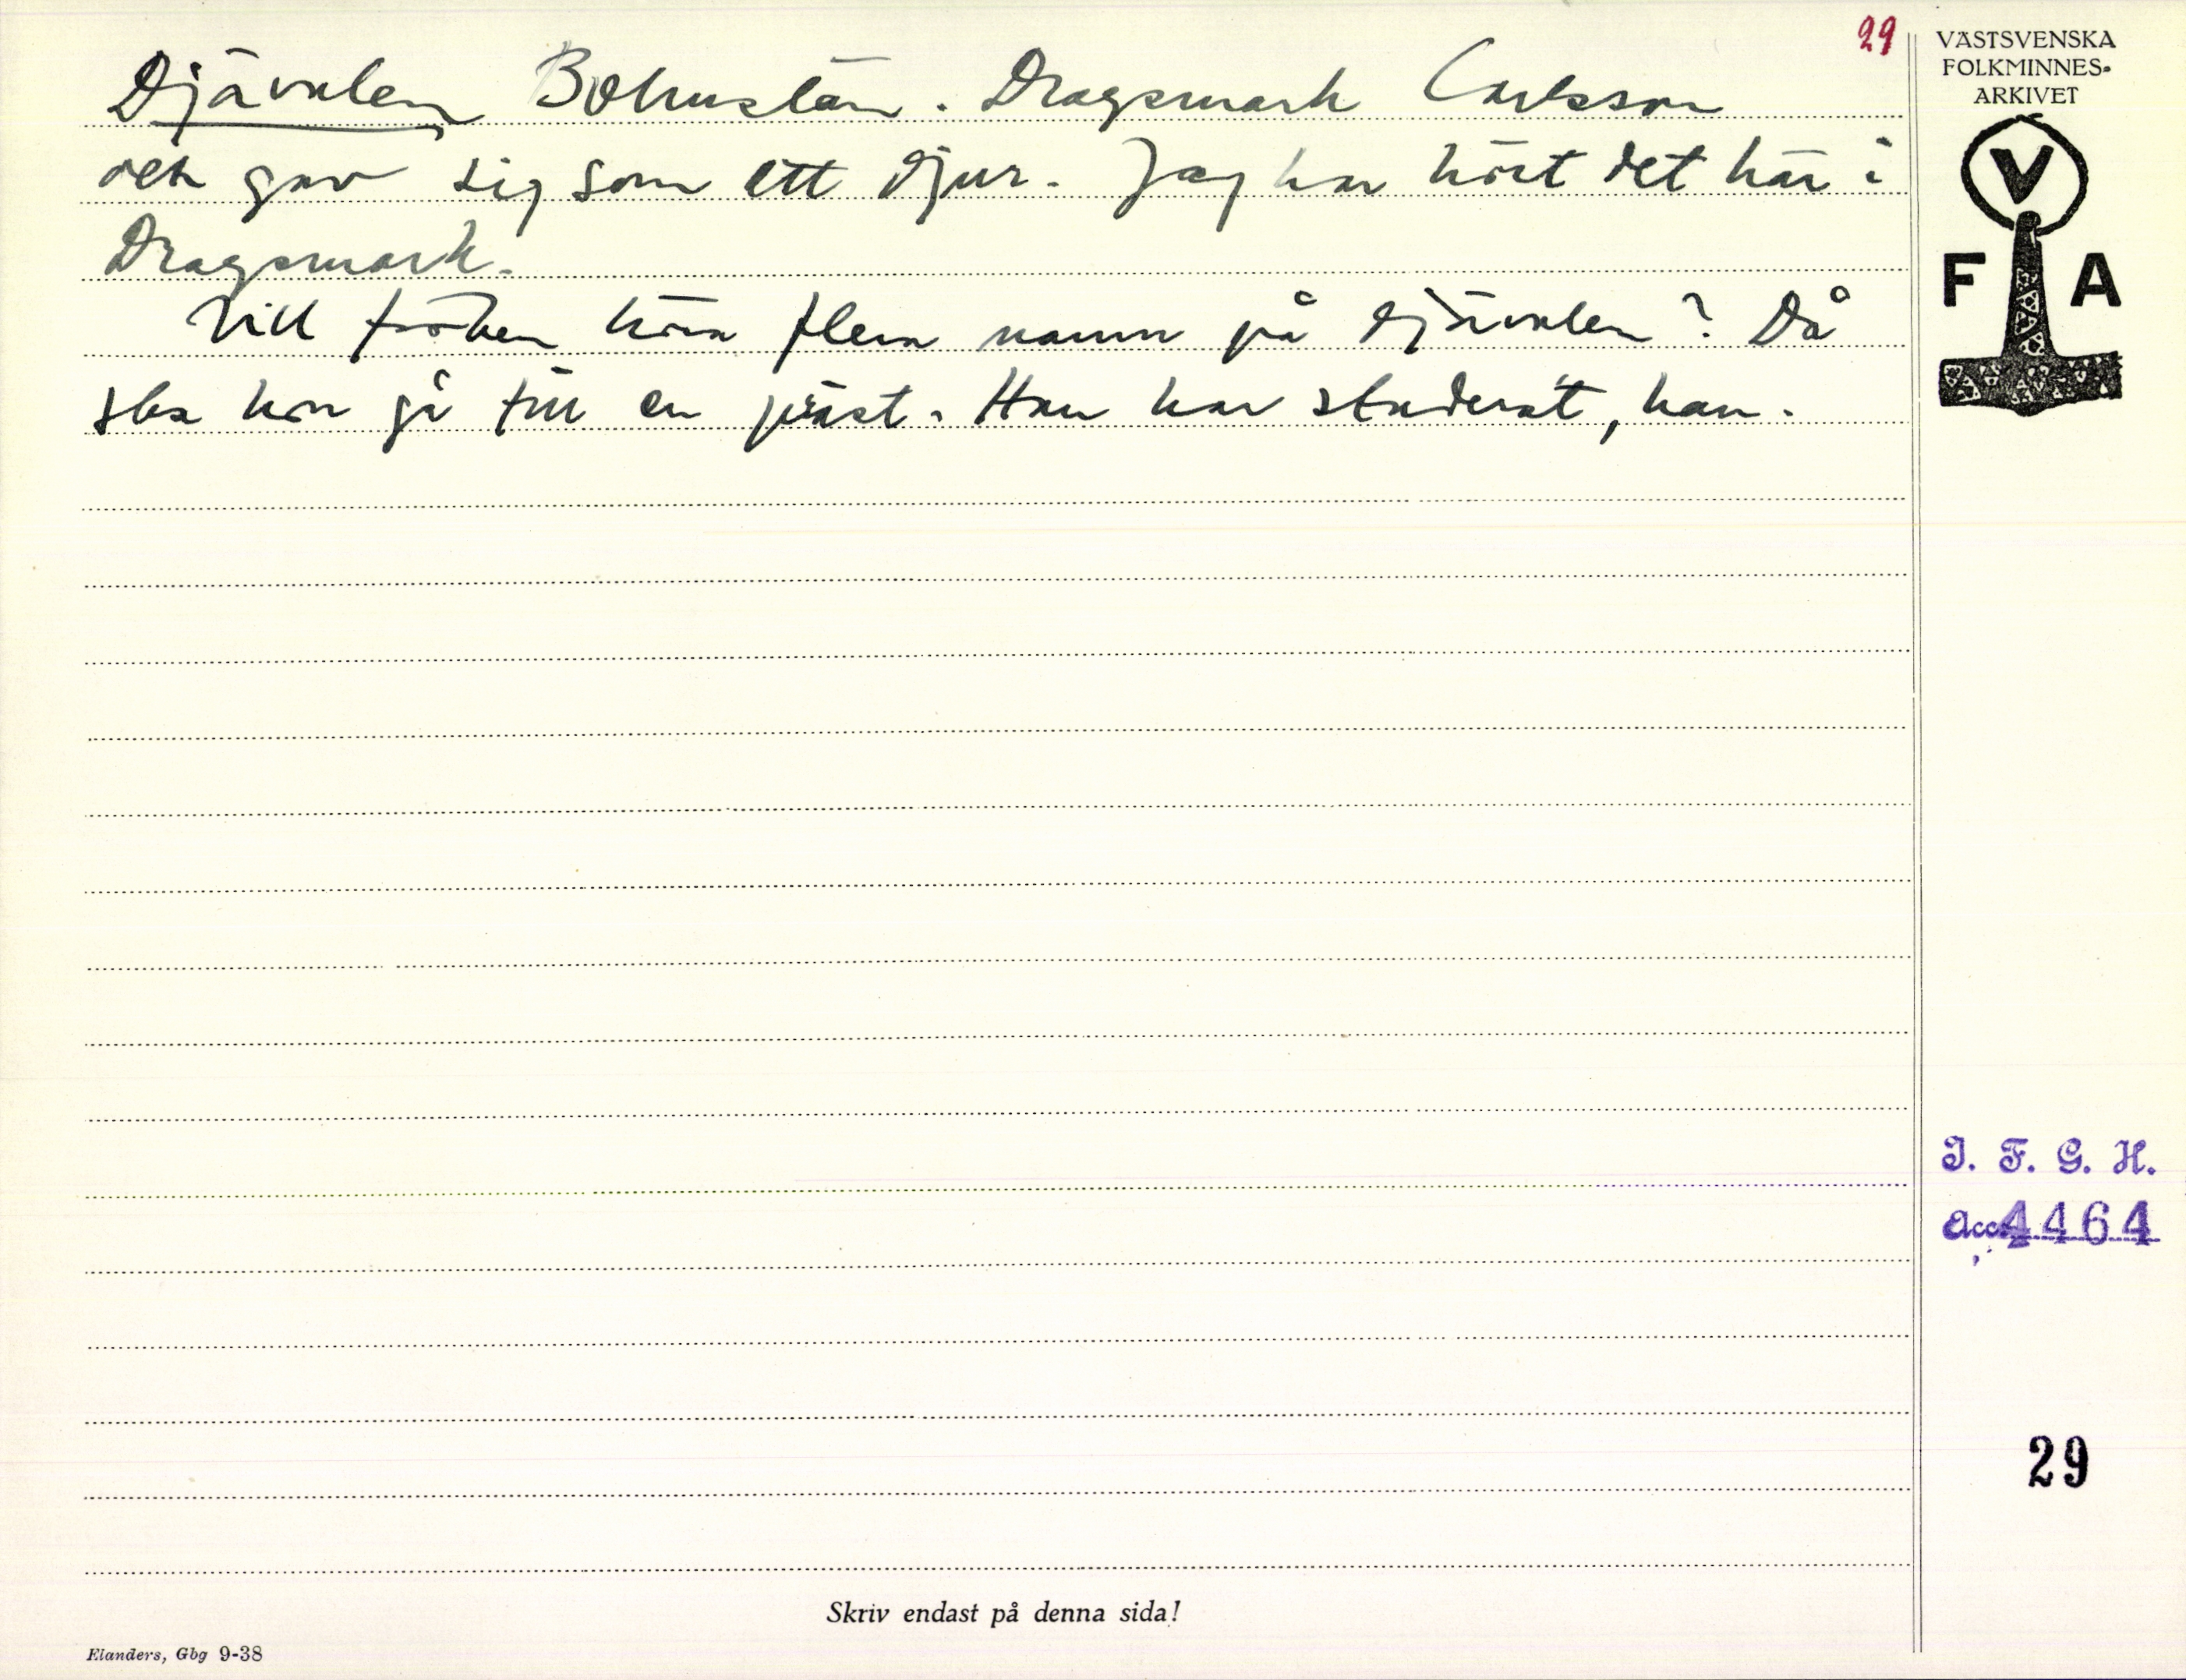 29
Djävulen Bohuslän. Dragsmark Carlsson
och gav sig som ett djur. Jag har hört det här i
Dragsmark.
Vill fröken höra flera namn på djävulen? Då
ska hon gå till en präst. Han har studerat, han.
VÄSTSVENSKA
FOLKMINNES-
ARKIVET
V
F A
I. F. G. H.
Acc. 4464
29
Skriv endast på denna sida!
Elanders, Gbg 9-38